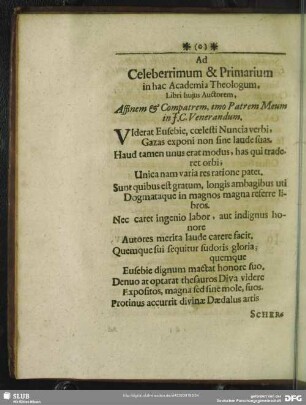 ❋ (o) ❋
Ad
Celeberrimum & Primarium
in hac Academia Theologum,
Libri hujus Auctorem,
Affinem & Compatrem, imo Patrem Meum
in J.C. Venerandum.
Viderat Eusebie, cœlesti Nuncia verbi,
Gazas exponi non sine laude suas.
Haud tamen unus erat modus, has qui trade-
ret orbi,
Unica nam varia res ratione patet.
Sunt quibus est gratum, longis ambagibus uti
Dogmataque in magnos magna referre li-
bros.
Nec caret ingenio labor, aut indignus ho-
nore
Autores merita laude carere facit,
Quemque sui sequitur sudoris gloria;
quemque
Eusebie dignum mactat honore suo,
Denuo at optarat thesauros Diva videre
Expositos, magna sed sine mole, suos.
Protinus accurrit divinæ Dædalus artis
SCHER-
SLUB
DFG